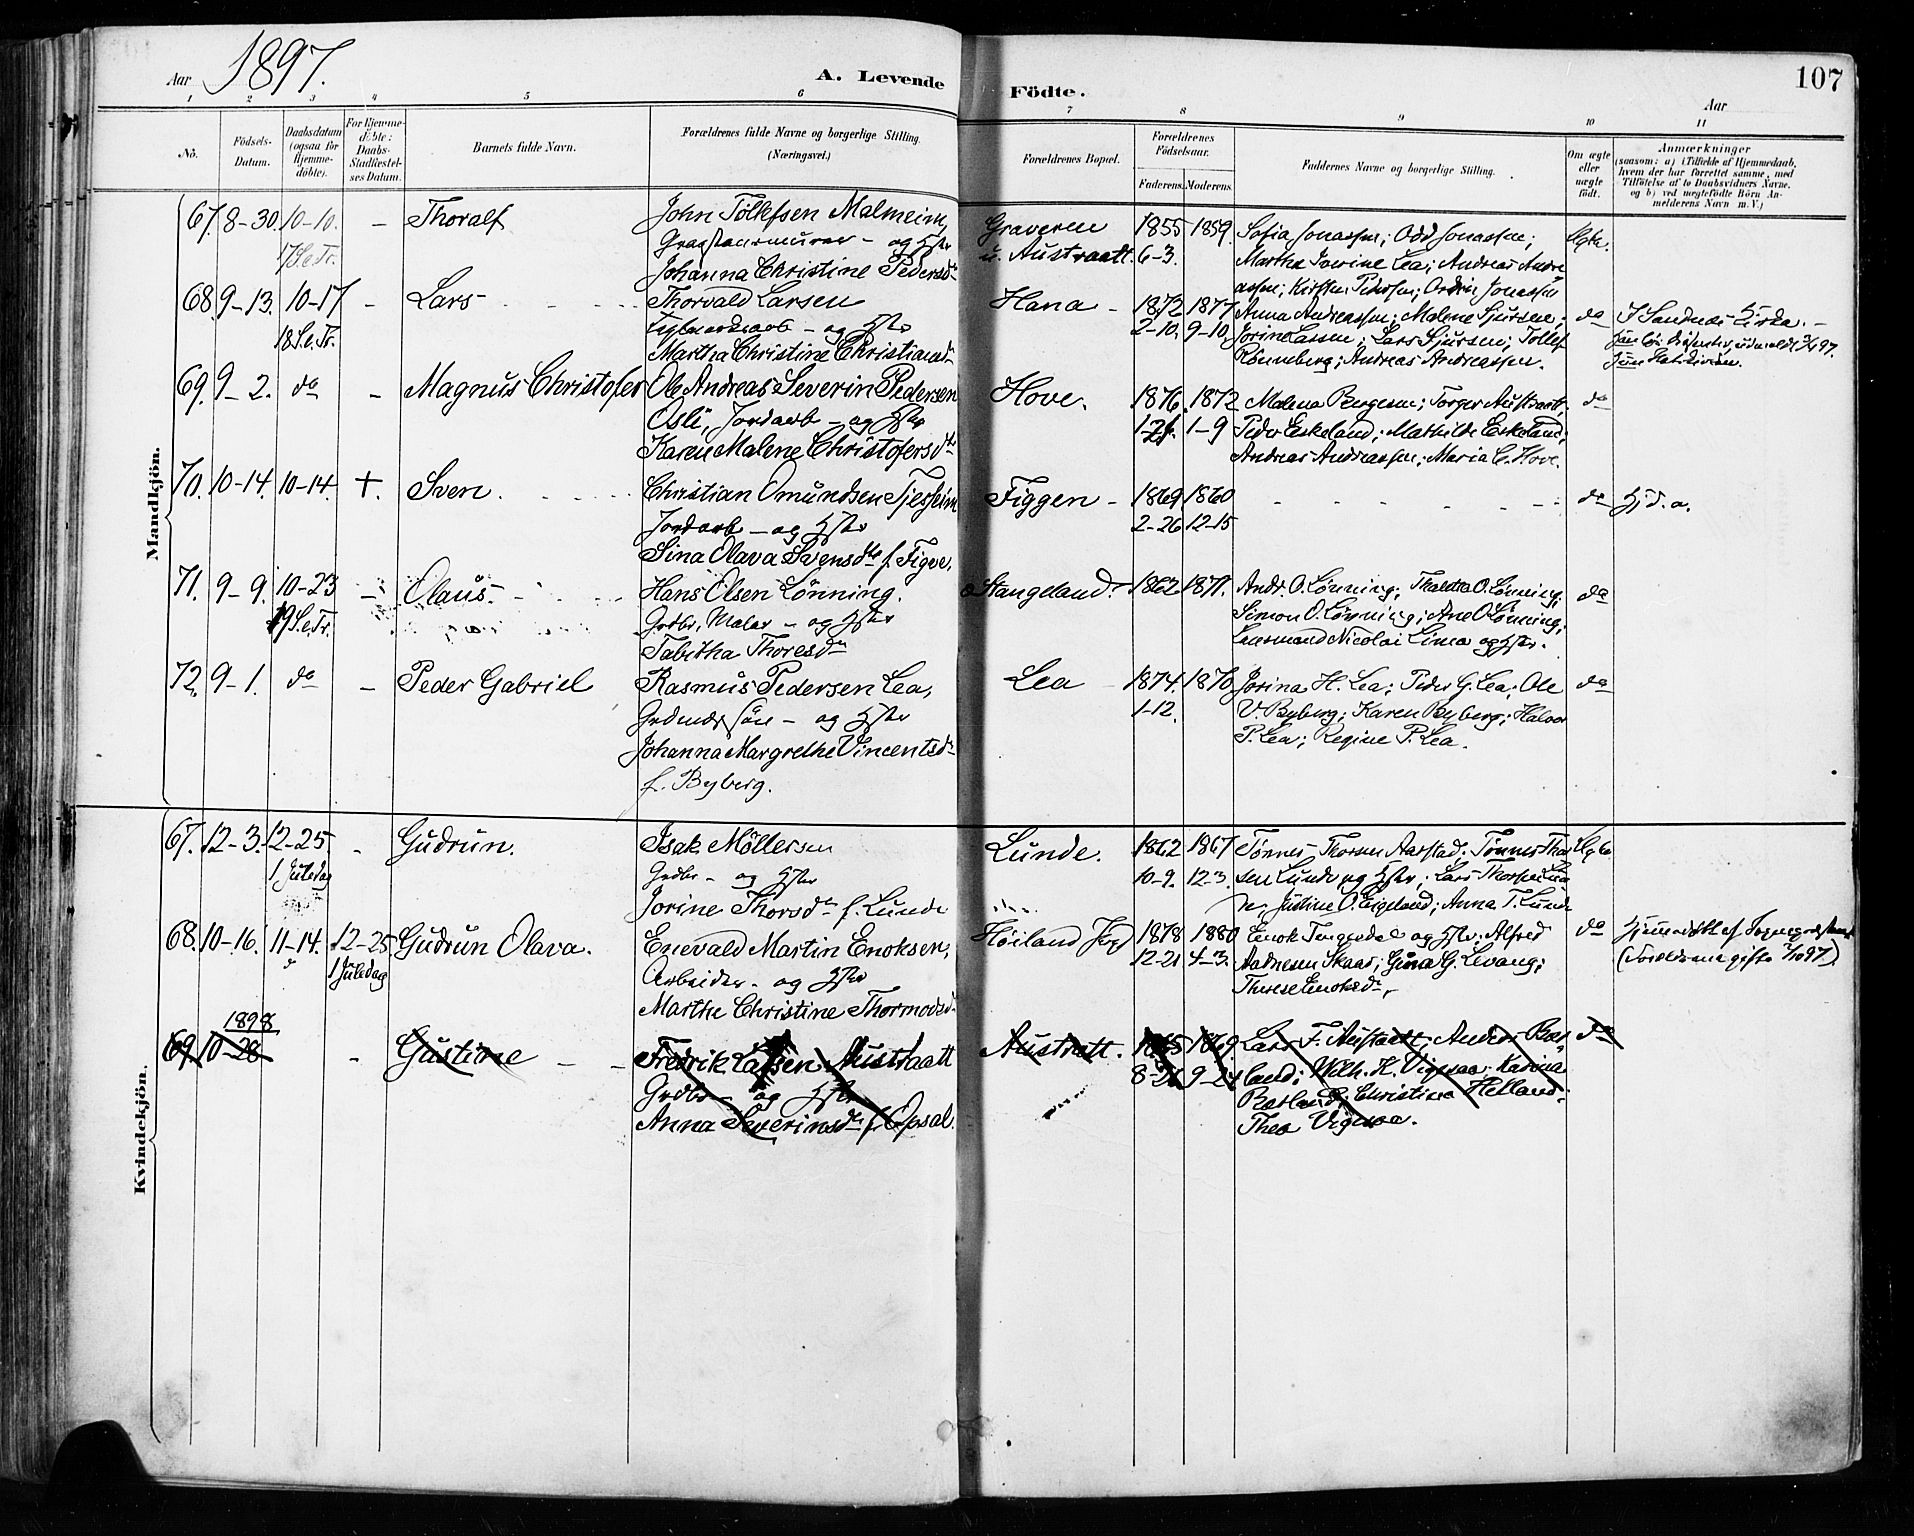 Aar 1897.
A. Levende
Födte.
Aar
107
1 2 3 4 5 6 7 8 9 10 11
No.
Födsels-
Datum.
Daabsdatum
(ogsaa for
Hjemme-
döbte).
For Hjemme-
döbte:
Daabs-
Stadfæstel-
ses Datum.
Barnets fulde Navn.
Forældrenes fulde Navne og borgerlige Stilling.
(Næringsvei.)
Forældrenes Bopæl.
Forældrenes
Födselsaar.
Faderens. Moderens.
Faddernes Navne og borgerlige Stilling.
Om ægte
eller
uægte
födt.
Anmærkninger
(saasom: a) i Tilfælde af Hjemmedaab,
hvem der har forrettet samme, med
Tilföielse af to Daabsvidners Navne,
og b) ved uægtefödte Börn An-
melderens Navn m. V.)
Mandkjön.
67. 8-30. 10-10. - Thoralf
17 S.e.Tr.
John Tollefsen Malmeim,
- og Hstr
Johanna Christine Pedersdtr
Graveren
u. Austraatt.
1855 1859.
6-3.
Sofia Jonassen; Odd Jonassen;
Martha Lea; Andreas Andre
assen; Jonassen
Ægte.
68. 9-13. 10-17 - Lars
18 S.e.Tr.
Thorvald Larsen
- og Hstr
Martha Christine Christiansdtr
Hana -
1872 1877
2-10. 9-10.
Anna Andreassen; Malene Sjursen;
Jorine Larsen; Lars Sjursen; Tollef
Rönneberg; Andreas Andreassen.
do
I Sandnes Kirke. -
69. 9-2. do - Magnus Christofer
Ole Andreas Severin Pedersen
Osli, Jordarb - og Hstr
Karen Malene Christofersdtr
Hove.
1876. 1872
1-9
Malena Bergesen; Torger Austraatt;
Peder Eskeland; Mathilde Eskeland;
Andreas Andreassen; Maria C. Hove.
do
70. 10-14. 10-14. +. Sven.
Christian Omundsen Tjesseim
Jordarb - og Hstr
Sina Olava Svensdtr f. Figve.
Figgen -
1869 1860
2-26 12-15
do Hjd. a.
71. 9-9. 10-23 - Olaus.
19 S.e.Tr.
Hans Olsen Lönning.
Grdbr, Maler - og Hstr
Tabitha Thoresdtr
Stangeland.
1862 1871.
Andr. O. Lönning; Thaletta O. Lönning;
Simon O. Lönning; Ane O. Lönning;
Lensmand Nicolai Lima og Hstr.
do
72. 9-1. do - Peder Gabriel
Rasmus Pedersen Lea,
Grdmds Sön - og Hstr
Johanna Margrethe Vincentsdtr
f. Byberg.
Lea
1874. 1870
1-12.
Jorina H. Lea; Peder G. Lea; Ole
V. Byberg; Karen Byberg; Halvor
P. Lea; Regine P. Lea.
do
Kvindekjön.
67. 12-3. 12-25. - Gudrun.
1 Juledag
Isak Möllersen
Grdbr - og Hstr
Jorine Thorsdtr f. Lunde
Lunde.
1862 1867
10-9. 12-3.
Tönnes Thorsen Aarstad. Tönnes Thor
sen Lunde og Hstr; Lars Thorsen Lun
de, Justine O. Eigeland; Anna T. Lunde
Ægte
68. 10-16. 11-14. 12-25 Gudrun Olava.
1 Juledag
Enevald Martin Enoksen,
Arbeider - og Hstr
Marthe Christine Thormodsdtr
Höiland
1878 1880
12-21 4-3.
Enok Tengesdal og Hstr; Alfred
Aadnesen Skaar; Gina G. Levang;
Therese Enoksdtr,
do
Hjemmedöbt af Sognepræsten
(Forældrene gifte 97)
1898
69. 10-28 - Gustine
Fredrik Larsen Austraatt
Grdbr - og Hstr
Anna Severinsdtr f. Opsal.
Austratt.
1865 1869
Lars F. Austratt; Andreas
land; Wilh. H. Vignæs; Karina
Christina Helland;
Thea Vignæs.
do